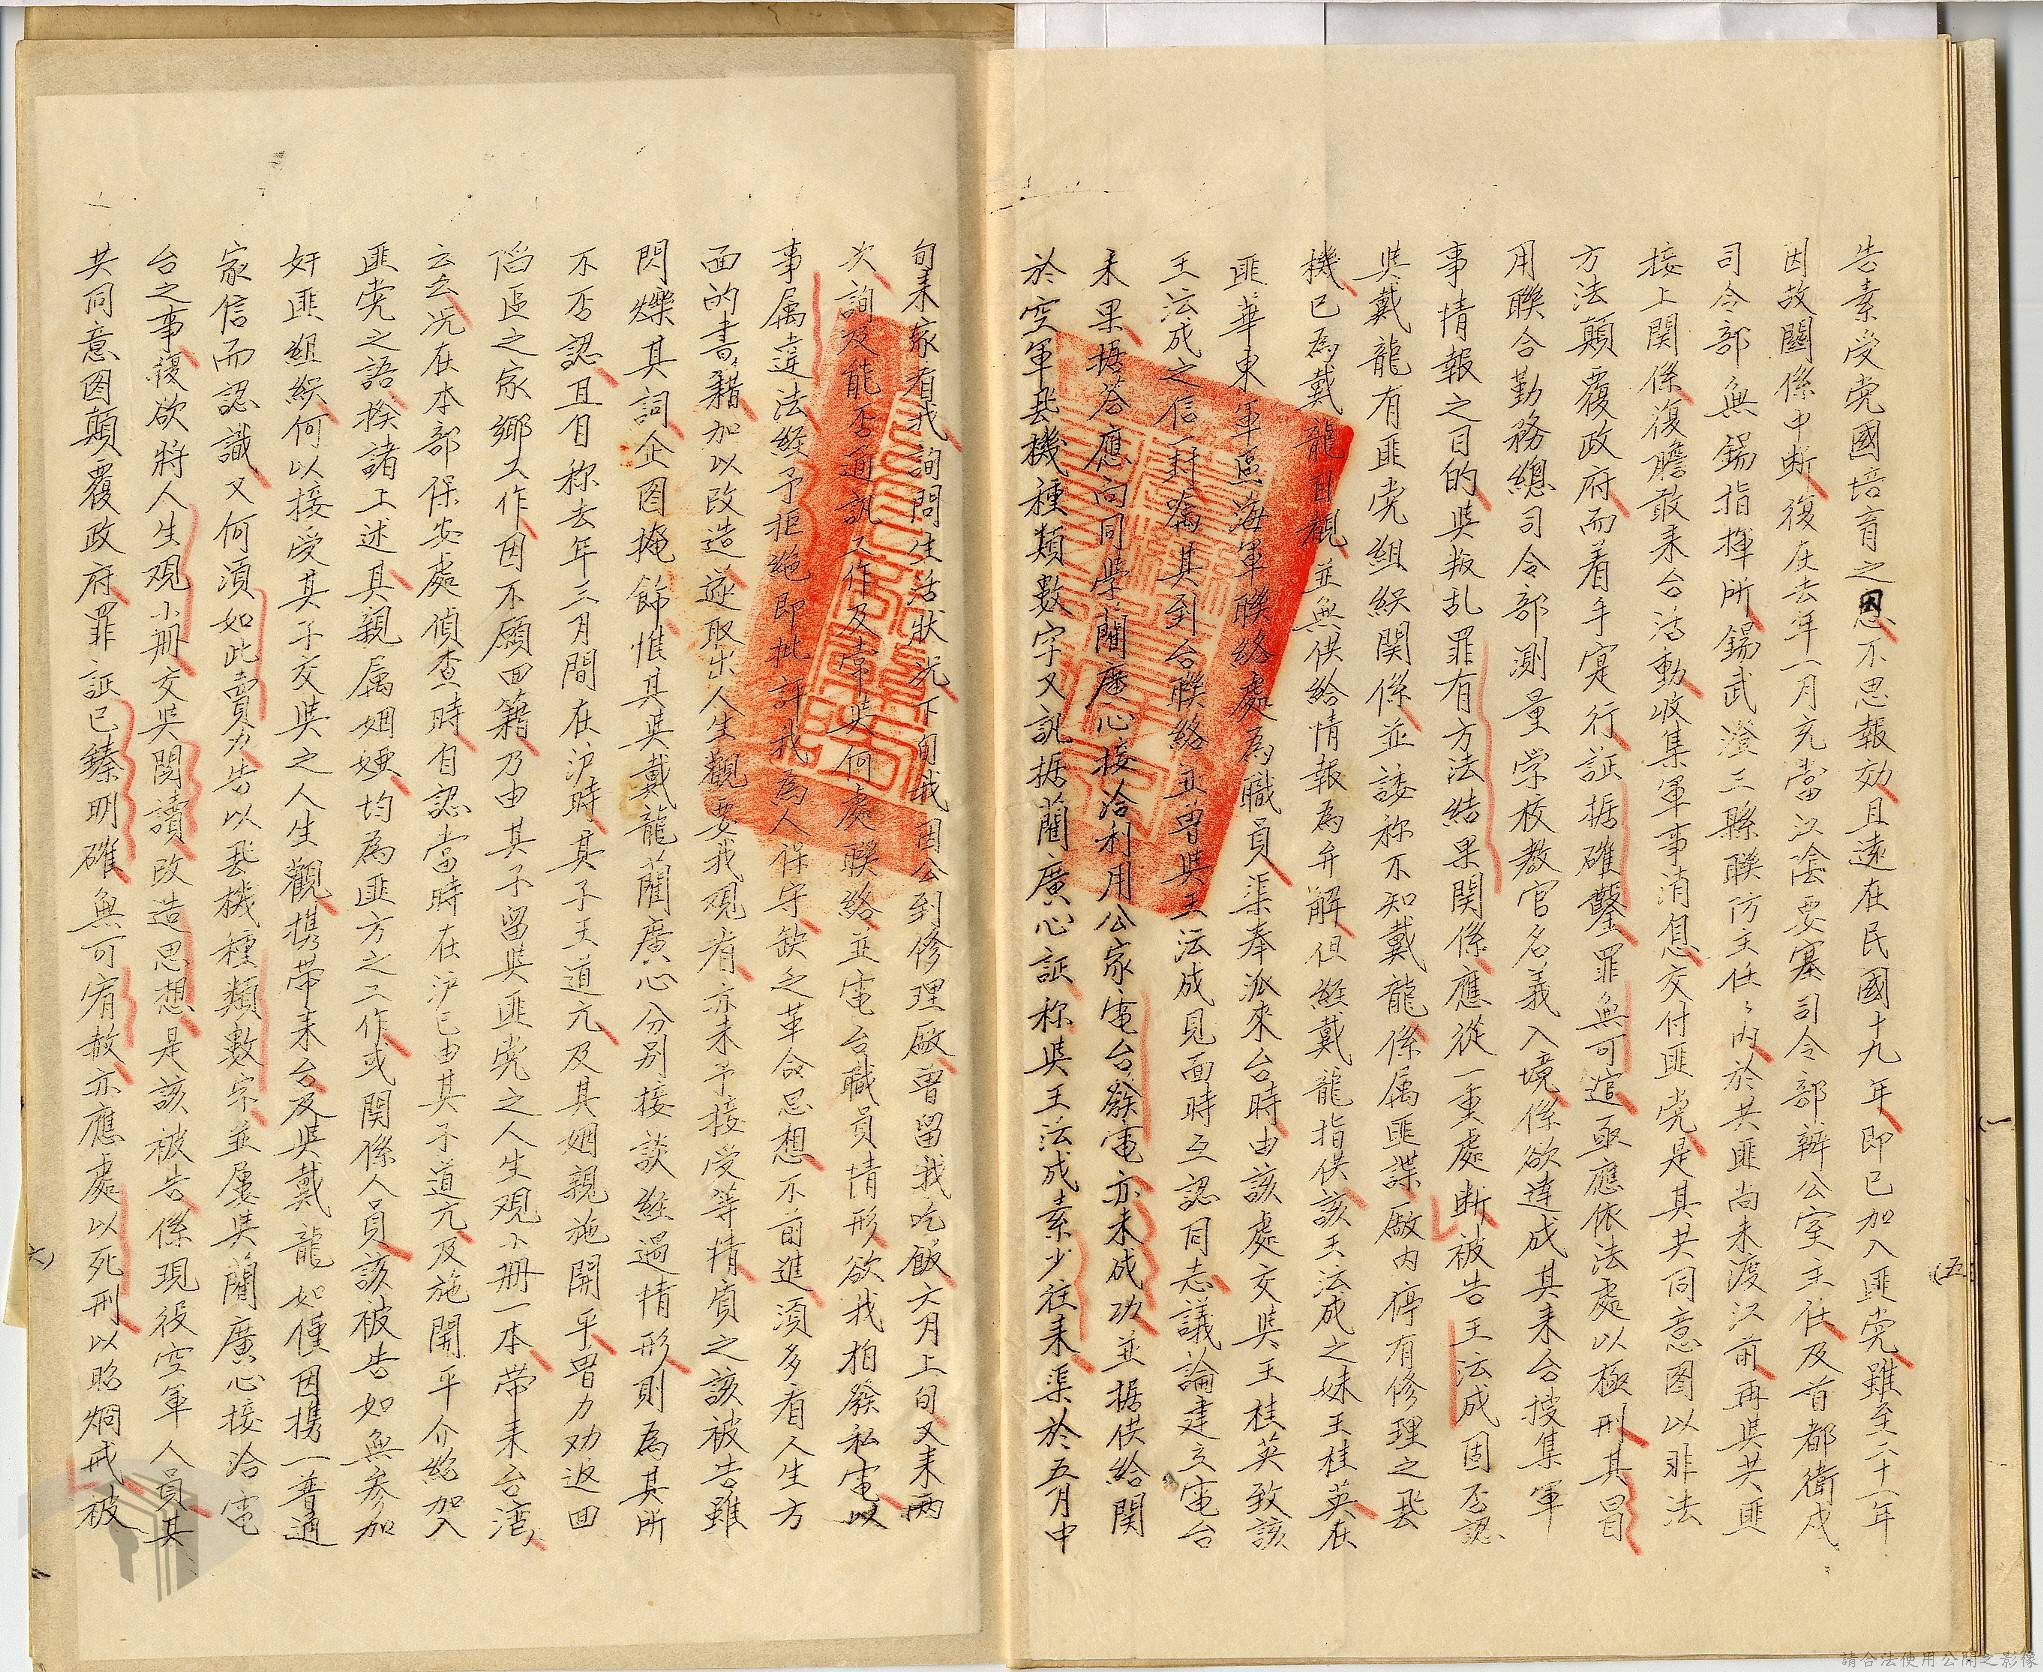 告素受党國培育之恩不思報効且遠在民國十九年即已加入匪党雖至二十一年
因故關係中斷復在去年一月充當江陰要塞司令部辦公室主任及首都衛戍
司令部無錫指揮所錫武澄三縣聯防主任內於共匪尚未渡江前再與共匪
接上関係復膽敢来台活動收集軍事消息交付匪党是其共同意图以非法
方法顛覆政府而着手实行証据確鑿罪無可逭亟應依法處以極刑其冒
用聯合勤務總司令部測量学校教官名義入境係欲達成其来台搜集軍
事情報之目的與叛乱罪有方法結果関係應從一重處断被告王法成固否認
與戴龍有匪党組織関係並諉称不知戴龍係属匪諜廠內停有修理之飛
機已為戴龍目覩並無供給情報為弁解但經戴龍指供該王法成之妹王桂英在
匪華東軍區海軍聯絡處為職員渠奉派來台時由該處交與王桂英致該
王法成之信一封囑其到台聯絡並曾與王法成見面時互認同志議論建立電台
未果據答應向同学藺廣心接洽利用公家電台發電亦未成功並据供給関
於空軍飛機種類數字又訊据藺廣心証称與王法成素少往来渠於五月中
旬来家看我詢問生活狀况下旬我因公到修理廠曾留我吃飯六月上旬又来两
次詢及能否通訊工作及常與何處聯絡並電台職員情形欲我拍發私電以
事属違法經予拒絶即批評我為人保守缺乏革命思想不前進須多看人生方
面的書籍加以改造遂取出人生觀要我观看亦未予接受等情質之該被告雖
閃爍其詞企图掩飾惟其與戴龍藺廣心分别接談經過情形則為其所
不否認且自称去年三月間在沪時其子王道亢及其姻親施開平曾力劝返回
陷區之家鄉工作因不願回籍乃由其子留與匪党之人生观小册一本带来台湾
云云况在本部保安處偵查時自認當時在沪已由其子道亢及施開平介紹加入
匪党之語揆諸上述其親属姻婭均為匪方之工作或関係人員該被告如無参加
奸匪組織何以接受其子交與之人生觀携带来台及與戴龍如僅因携一普通
家信而認識又何須如此賣力告以飛機種類數字並屢與藺廣心接洽電
台之事復欲將人生观小册交與閲讀改造思想是該被告係現役空軍人員其
共同意图顛覆政府罪証已臻明確無可宥赦亦應處以死刑以昭炯戒被
(五)
請合法使用公開之影像